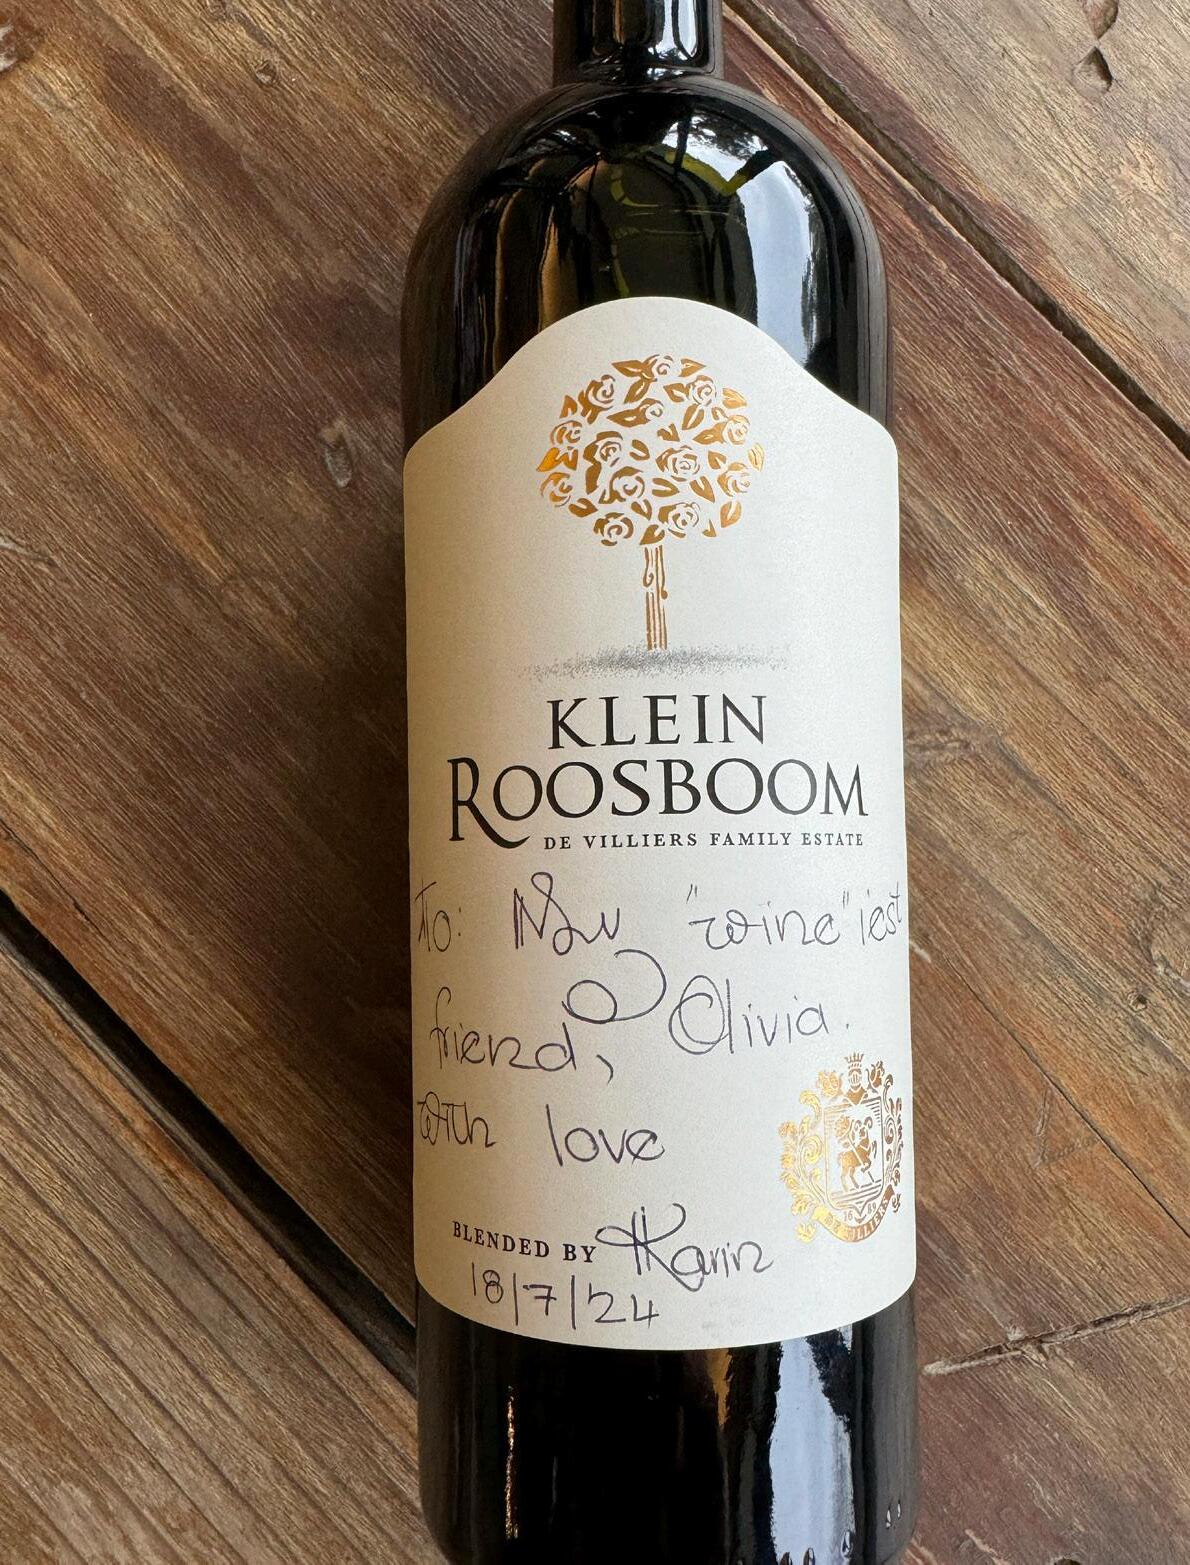 KLEIN
ROOSBOOM
DE VILLIERS FAMILY ESTATE
To: My "wine"iest
friend, Olivia.
with love
BLENDED BY Karin
18/7/24